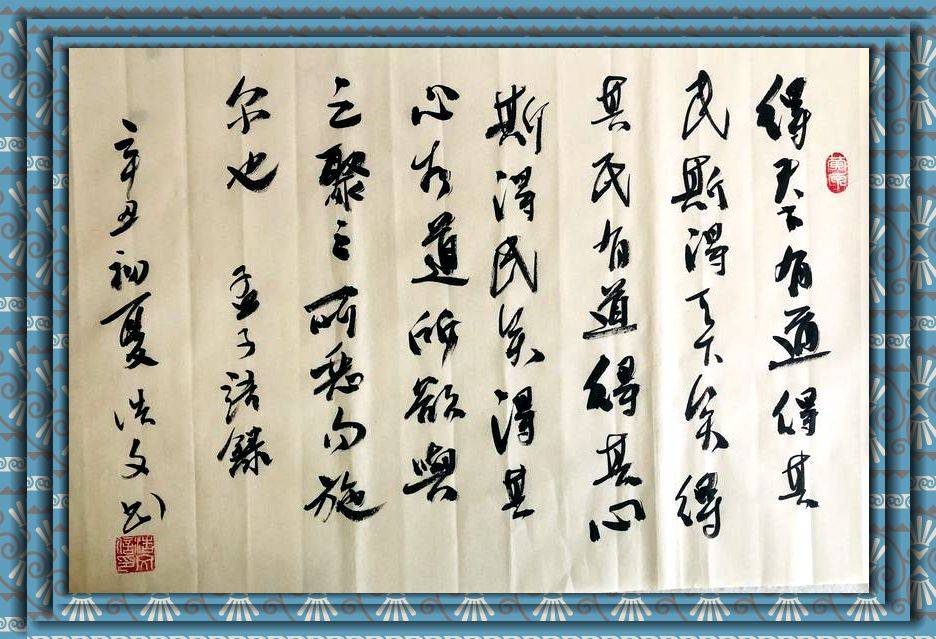 得天下有道得其
民斯得天下矣得
其民有道得其心
斯得民矣得其
心有道所欲與
之聚之所惡勿施
尔也 孟子語録
辛丑初夏浩文书